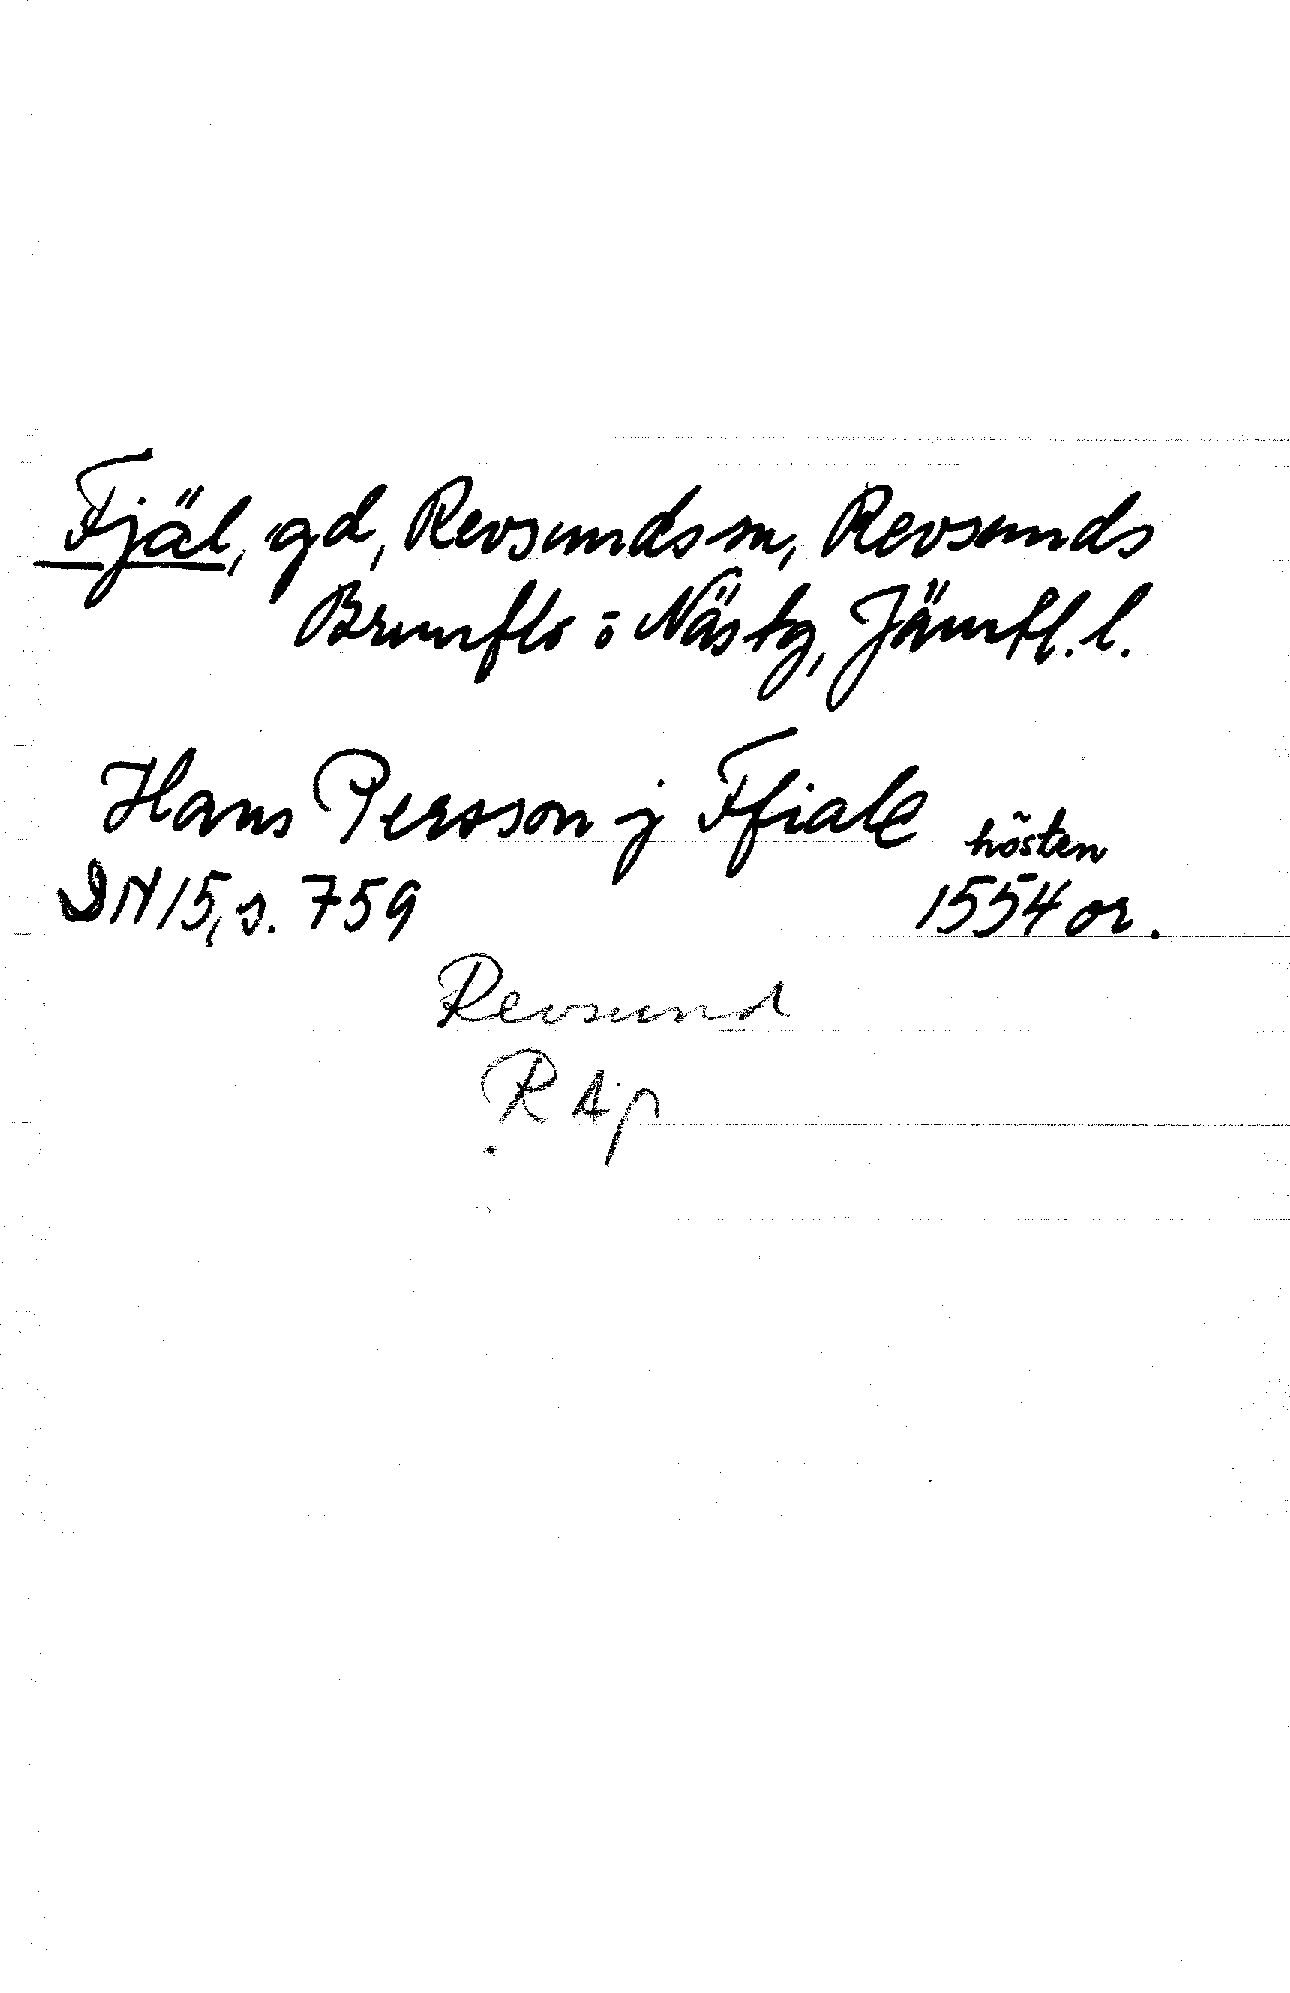 Fjäl, gd, Revsunds sn, Revsunds
Brunflo o Näs tg, Jämtl. l.
Hans Persson j Ffiale
hösten
DN 15, s. 759 1554 or.
Revsund
R Ap